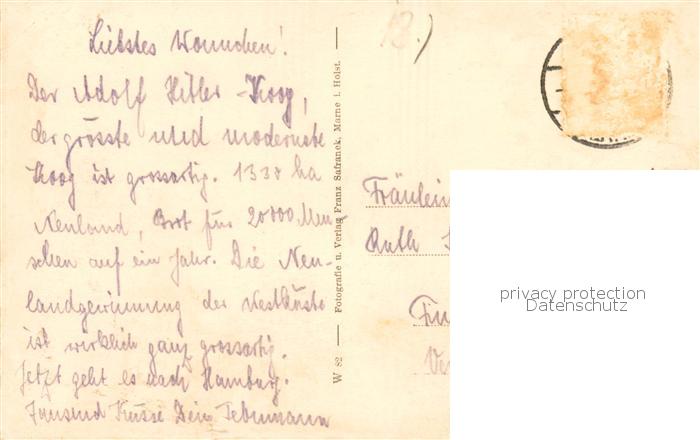 Liebstes Wonnchen!
Der Adolf Hitler-Koog,
der grösste und modernste
Koog ist grossartig. 1330 ha
Neuland, Brot für 20000 Men-
schen auf ein Jahr. Die Neu-
landgewinnung der Westküste
ist wirklich ganz grossartig.
Jetzt geht es nach Hamburg.
Tausend Küsse Dein
W 82 — Fotografie u. Verlag Franz Safranek, Marne i. Holst. —
Fräulein
Ruth
privacy protection
Datenschutz